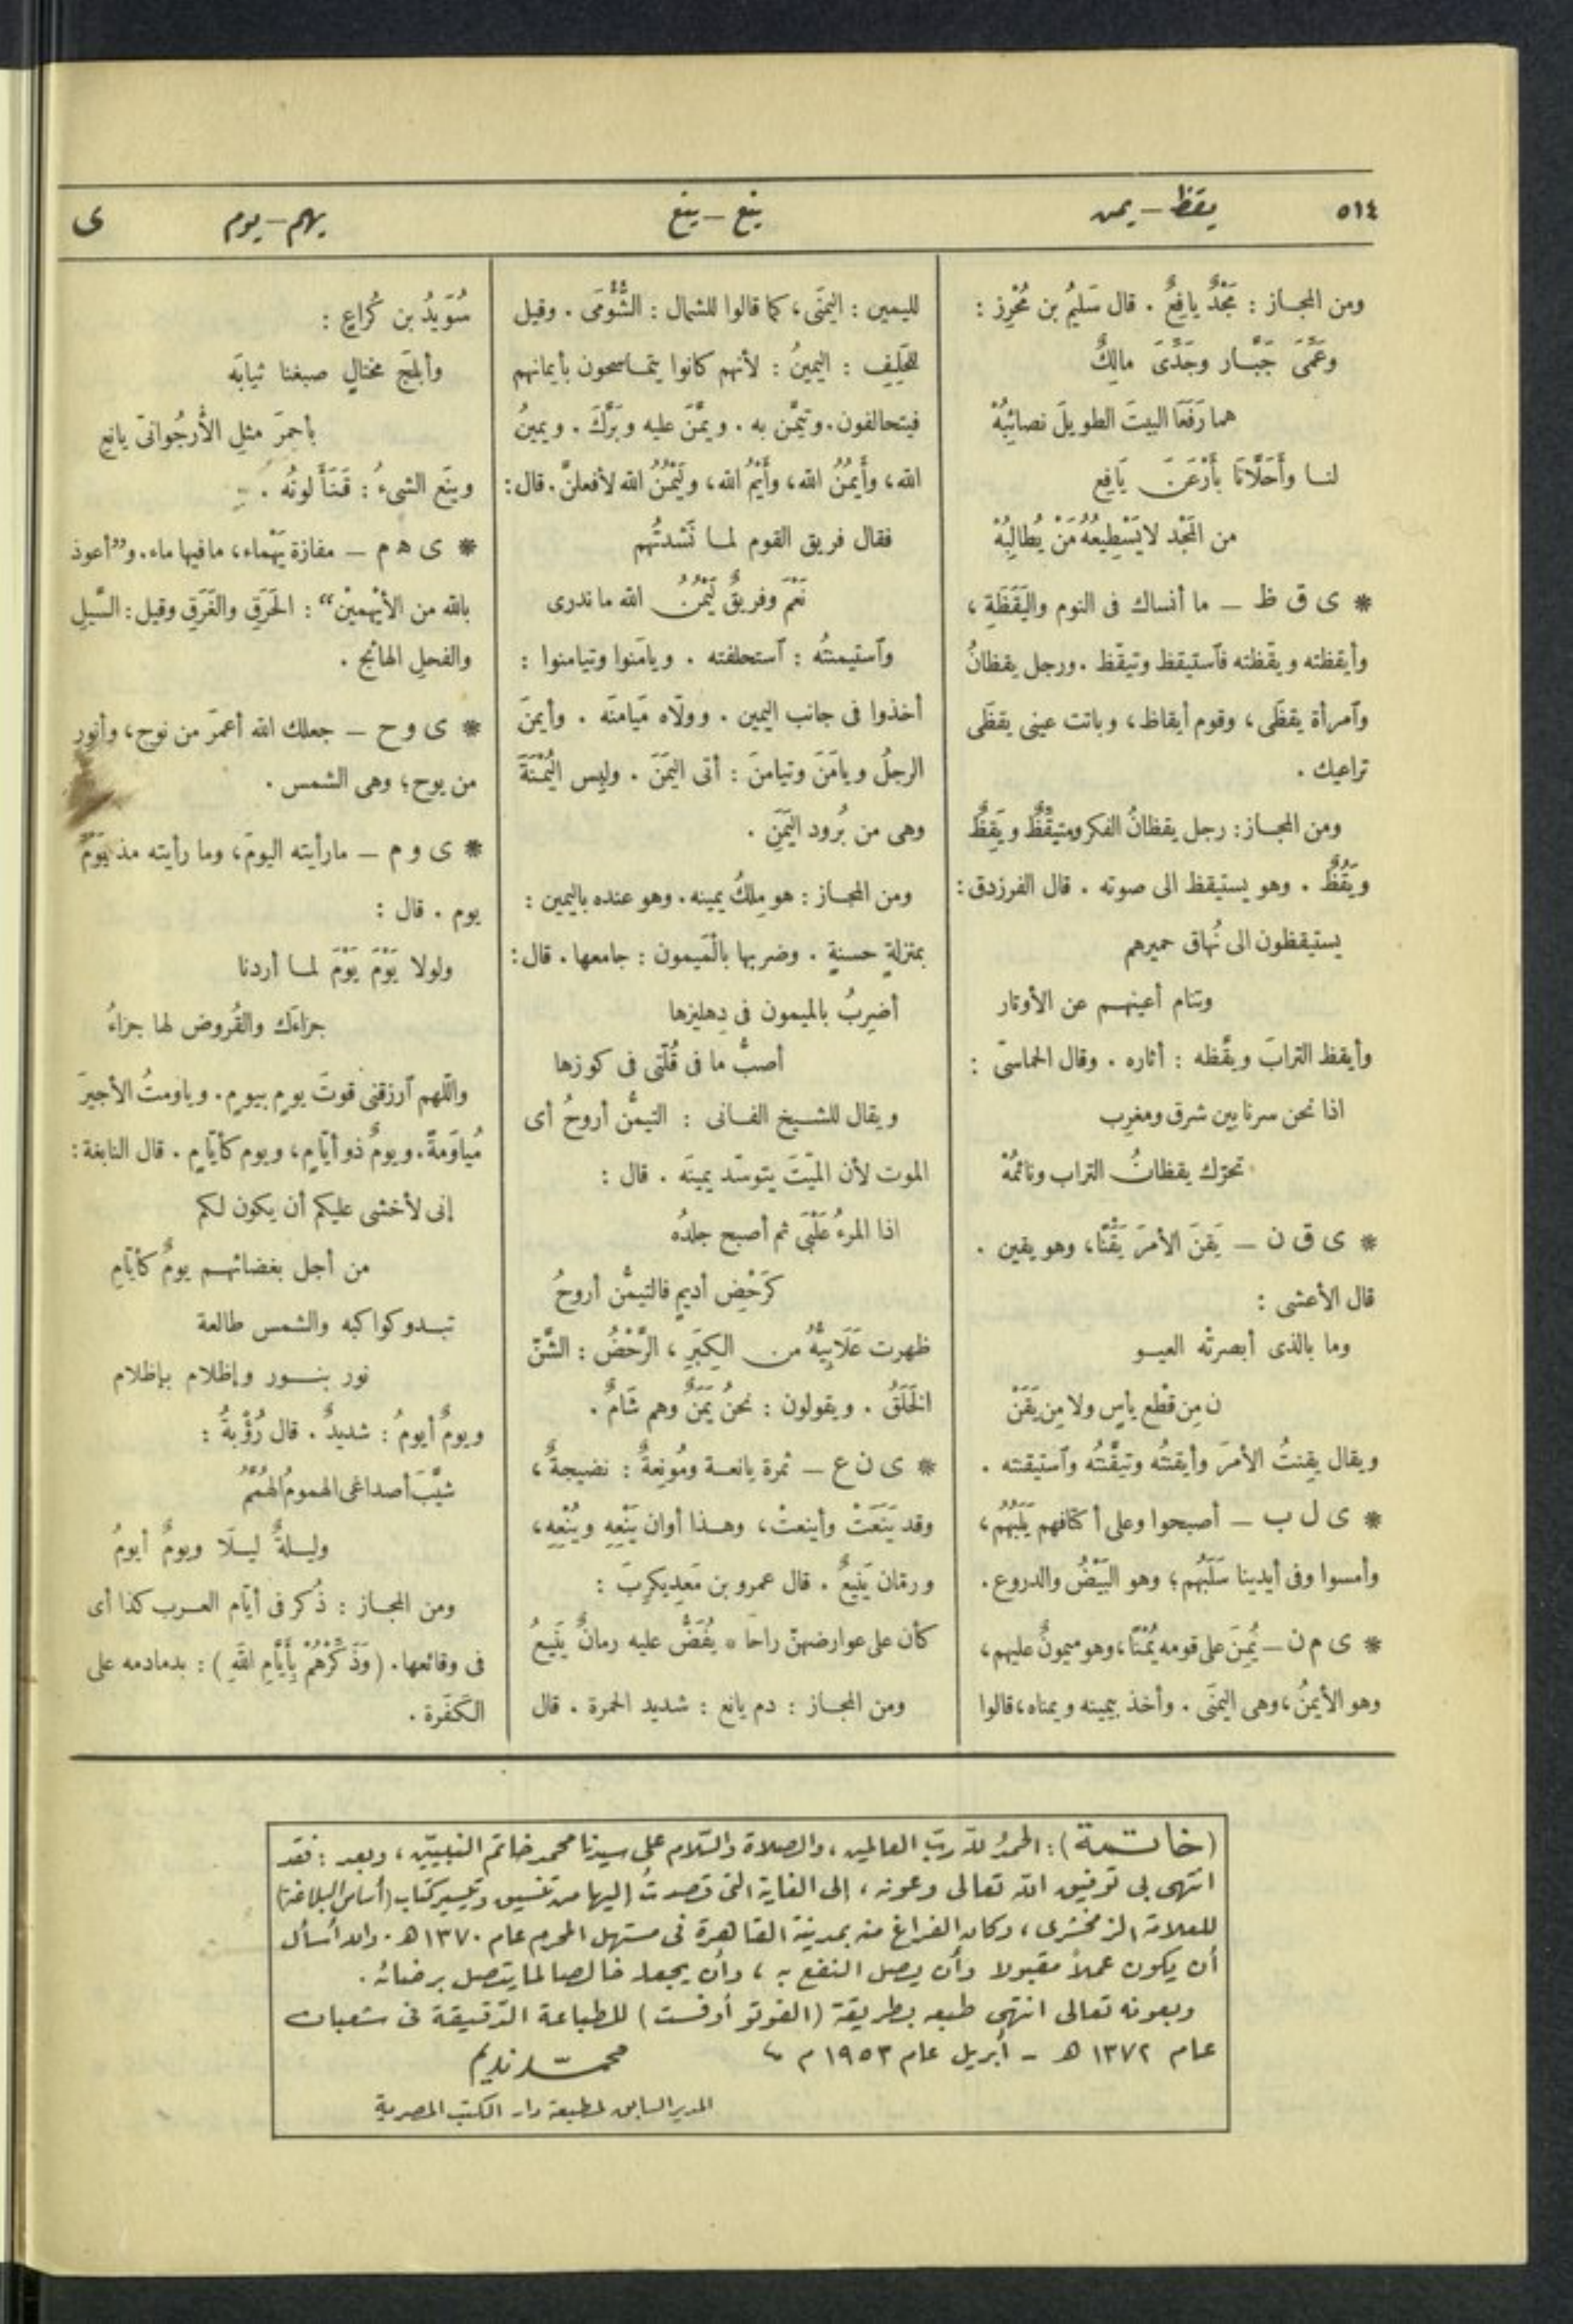 ٥١٤
يقظ - يمن
ينع - ينع
يهم - يوم
ى
ومن المجاز : مَجْدٌ يافِعٌ . قال سَليمُ بن مُحْرِز :
وعَمَّىَ جَبَّار وجَدَّىَ مالِكٌ
هما رَفَعَا البيتَ الطويلَ نصائِبُهْ
لنا وأَحَلَّانَا بأَرْعَنَ يَافِعٍ
من المَجْد لا يَسْطِيعُهُ مَنْ يُطالِبُهْ
* ى ق ظ – ما أنساك فى النوم واليَقَظَةِ ،
وأيقظته ويقّظته فآستيقظ وتيقّظ . ورجل يقظانُ
وآمرأة يقظَى ، وقوم أيقاظ ، وباتت عينى يقظَى
تراعيك .
ومن المجاز : رجل يقظانُ الفكر ومتيقِّظٌ ويَقِظٌ
ويَقُظٌ . وهو يستيقظ الى صوته . قال الفرزدق :
يستيقظون الى نُهاق حميرهم
وتنام أعينهم عن الأوتار
وأيقظ الترابَ ويقَّظه : أثاره . وقال الحماسىّ :
اذا نحن سرنا بين شرق ومغرِب
تحرّك يقظانُ التراب ونائمُهْ
* ى ق ن – يَقِنَ الأمرَ يَقَنًا ، وهو يقين .
قال الأعشى :
وما بالذى أبصرتْه العيو
ن مِن قَطْع يأسٍ ولا مِن يَقَنْ
ويقال يقِنتُ الأمرَ وأيقنتُه وتيقَّنتُه وآستيقنته .
* ى ل ب – أصبحوا وعلى أكتافهم يَلَبُهُم ،
وأمسوا وفى أيدينا سَلَبُهُم ؛ وهو البَيْضُ والدروع .
* ى م ن – يُمِنَ على قومه يُمْنًا ، وهو ميمونٌ عليهم ،
وهو الأيمنُ ، وهى اليمنَى . وأخذ بيمينه ويمناه ، قالوا
لليمين : اليمنَى ، كما قالوا للشمال : الشُّؤْمَى . وقيل
للحَلِفِ : اليمينُ : لأنهم كانوا يتماسحون بأيمانهم
فيتحالفون . وتيمّن به . ويمَّنَ عليه وبَرَّكَ . ويمينُ
الله ، وأَيمُنُ الله ، وأَيْمُ الله ، ولَيْمُنُ الله لأفعلنَّ . قال :
فقال فريق القوم لما نَشدتُهم
نَعَمْ وفريقٌ لَيْمُنُ الله ما ندرى
وآستيمنتُه : آستحلفته . ويامَنوا وتيامنوا :
أخذوا فى جانب اليمين . وولّاه مَيامنَه . وأيمنَ
الرجلُ ويامَنَ وتيامنَ : أتى اليمَنَ . ولبِس اليُمْنَةَ
وهى من بُرود اليَمَنِ .
ومن المجاز : هو مِلكُ يمينه . وهو عنده باليمين :
بمنزلةٍ حسنةٍ . وضربها بالمَيمون : جامعها . قال :
أضرِبُ بالميمون فى دِهليزها
أصبُّ ما فى قُلَّتى فى كوزها
ويقال للشيخ الفانى : التيمُّن أروحُ أى
الموت لأن الميِّتَ يتوسّد يمينَه . قال :
اذا المرءُ عَلْبَى ثم أصبح جلدُه
كرَحْضِ أديمٍ فالتيمُّن أروحُ
ظهرت عَلَابِيُّهُ من الكِبَرِ ، الرَّحْضُ : الشَّنّ
الخَلَقُ . ويقولون : نحنُ يَمَنٌ وهم شَامٌ .
* ى ن ع – ثمرة يانعة ومُونِعةٌ : نضيجةٌ ،
وقد يَنَعَتْ وأينعتْ ، وهذا أوان يَنْعِهِ ويُنْعِهِ ،
ورمّان يَنِيعٌ . قال عمرو بن مَعدِيكرِبَ :
كأن على عوارضهنّ راحًا * يُفَضُّ عليه رمانٌ يَنِيعُ
ومن المجاز : دم يانع : شديد الحمرة . قال
سُوَيدُ بن كُراعٍ :
وأبلجَ مختالٍ صبغنا ثيابَه
بأحمرَ مثلِ الأُرجُوانىّ يانعِ
وينَع الشىءُ : قَنَأَ لونُه .
* ى ه م – مفازة يَهْماء ، ما فيها ماء . و”أعوذ
بالله من الأَيْهمينْ“ : الحَرَقِ والغَرَقِ وقيل : السَّيلِ
والفحلِ الهائج .
* ى و ح – جعلك الله أعمرَ من نوح ، وأنور
من يوح ؛ وهى الشمس .
* ى و م – ما رأيته اليومَ ، وما رأيته مذ يَوْمُ
يوم . قال :
ولولا يَوْمَ يَوْمَ لما أردنا
جزاءَك والقُروض لها جزاءُ
واللّهم آرزقنى قوتَ يومٍ بيومٍ . وياومتُ الأجيرَ
مُياوَمةً . ويومٌ ذو أيّامٍ ، ويوم كأيّامٍ . قال النابغة :
إنى لأخشى عليكم أن يكون لكم
من أجل بغضائهم يومٌ كأيّامِ
تبدو كواكبه والشمس طالعة
نور بنور وإظلام بإظلام
ويومٌ أيومُ : شديدٌ . قال رُؤْبةُ :
شيَّبَ أصداغى الهمومُ الهُمَّمُ
وليلةٌ ليلَا ويومٌ أيومُ
ومن المجاز : ذُكر فى أيّام العرب كذا أى
فى وقائعها . (وَذَكِّرْهُمْ بِأَيَّامِ اللهِ) : بدمادمه على
الكَفَرة .
(خاتمة) : الحمدُ لله ربّ العالمين ، والصلاة والسّلام على سيدنا محمد خاتم النبيّين ، وبعد : فقد
انتهى بى توفيق الله تعالى وعونه ، إلى الغاية التى قصدتُ إليها من تنسيق وتيسير كتاب (أساس البلاغة)
للعلامة الزمخشرى ، وكان الفراغ منه بمدينة القاهرة فى مستهل المحرم عام ١٣٧٠ هـ . والله أسأل
أن يكون عملاً مقبولا وأن يصل النفع به ، وأن يجعله خالصا لما يتصل برضائه .
وبعونه تعالى انتهى طبعه بطريقة (الفوتو أوفست) للطباعة الدّقيقة فى شعبان
عام ١٣٧٢ هـ - أبريل عام ١٩٥٣ م
محمد نديم
المدير السابق لمطبعة دار الكتب المصرية